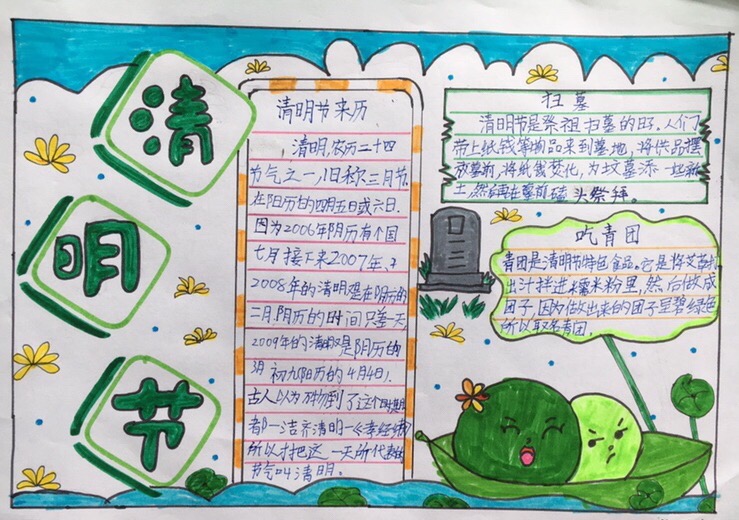 清
明
节
清明节来历
清明,农历二十四
节气之一,旧称三月节.
在阳历的四月五日或六日.
因为2006年阴历有个闰
七月接下来2007年、
2008年的清明是在阴历的
二月.阴历的时间只差一天
2009年的清明是阴历的
3月初九阳历的4月4日.
古人以为万物到了这个
都一洁齐清明一《孝经纬》
所以才把这一天所代表的
节气叫清明。
扫墓
清明节是祭祖扫墓的日子.人们
带上纸钱等物品来到墓地,将供品摆
放墓前,将纸钱焚化,为坟墓添一些新
土,然后再在墓前磕头祭拜。
吃青团
青团是清明节特色食品。它是将艾草
出汁拌进糯米粉里,然后做成
团子,因为做出来的团子呈碧绿色
所以取名青团.